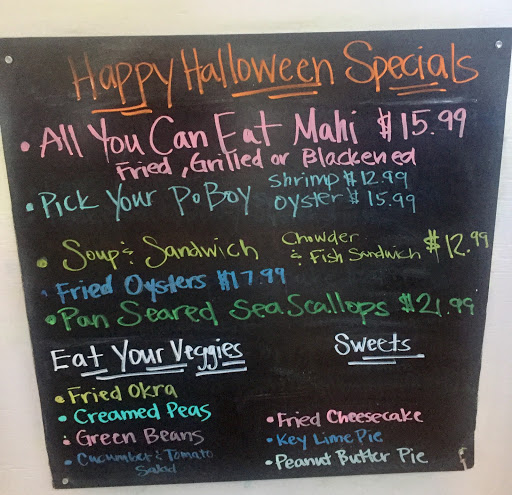 Happy Halloween Specials
• All You Can Eat Mahi $15.99
Fried, Grilled or Blackened
• Pick Your PoBoy shrimp $12.99
oyster $15.99
• Soup & Sandwich Chowder & Fish Sandwich $12.99
• Fried Oysters $17.99
• Pan Seared Sea Scallops $21.99
Eat Your Veggies
• Fried Okra
• Creamed Peas
• Green Beans
• Cucumber & Tomato
Salad
Sweets
• Fried Cheesecake
• Key Lime Pie
• Peanut Butter Pie